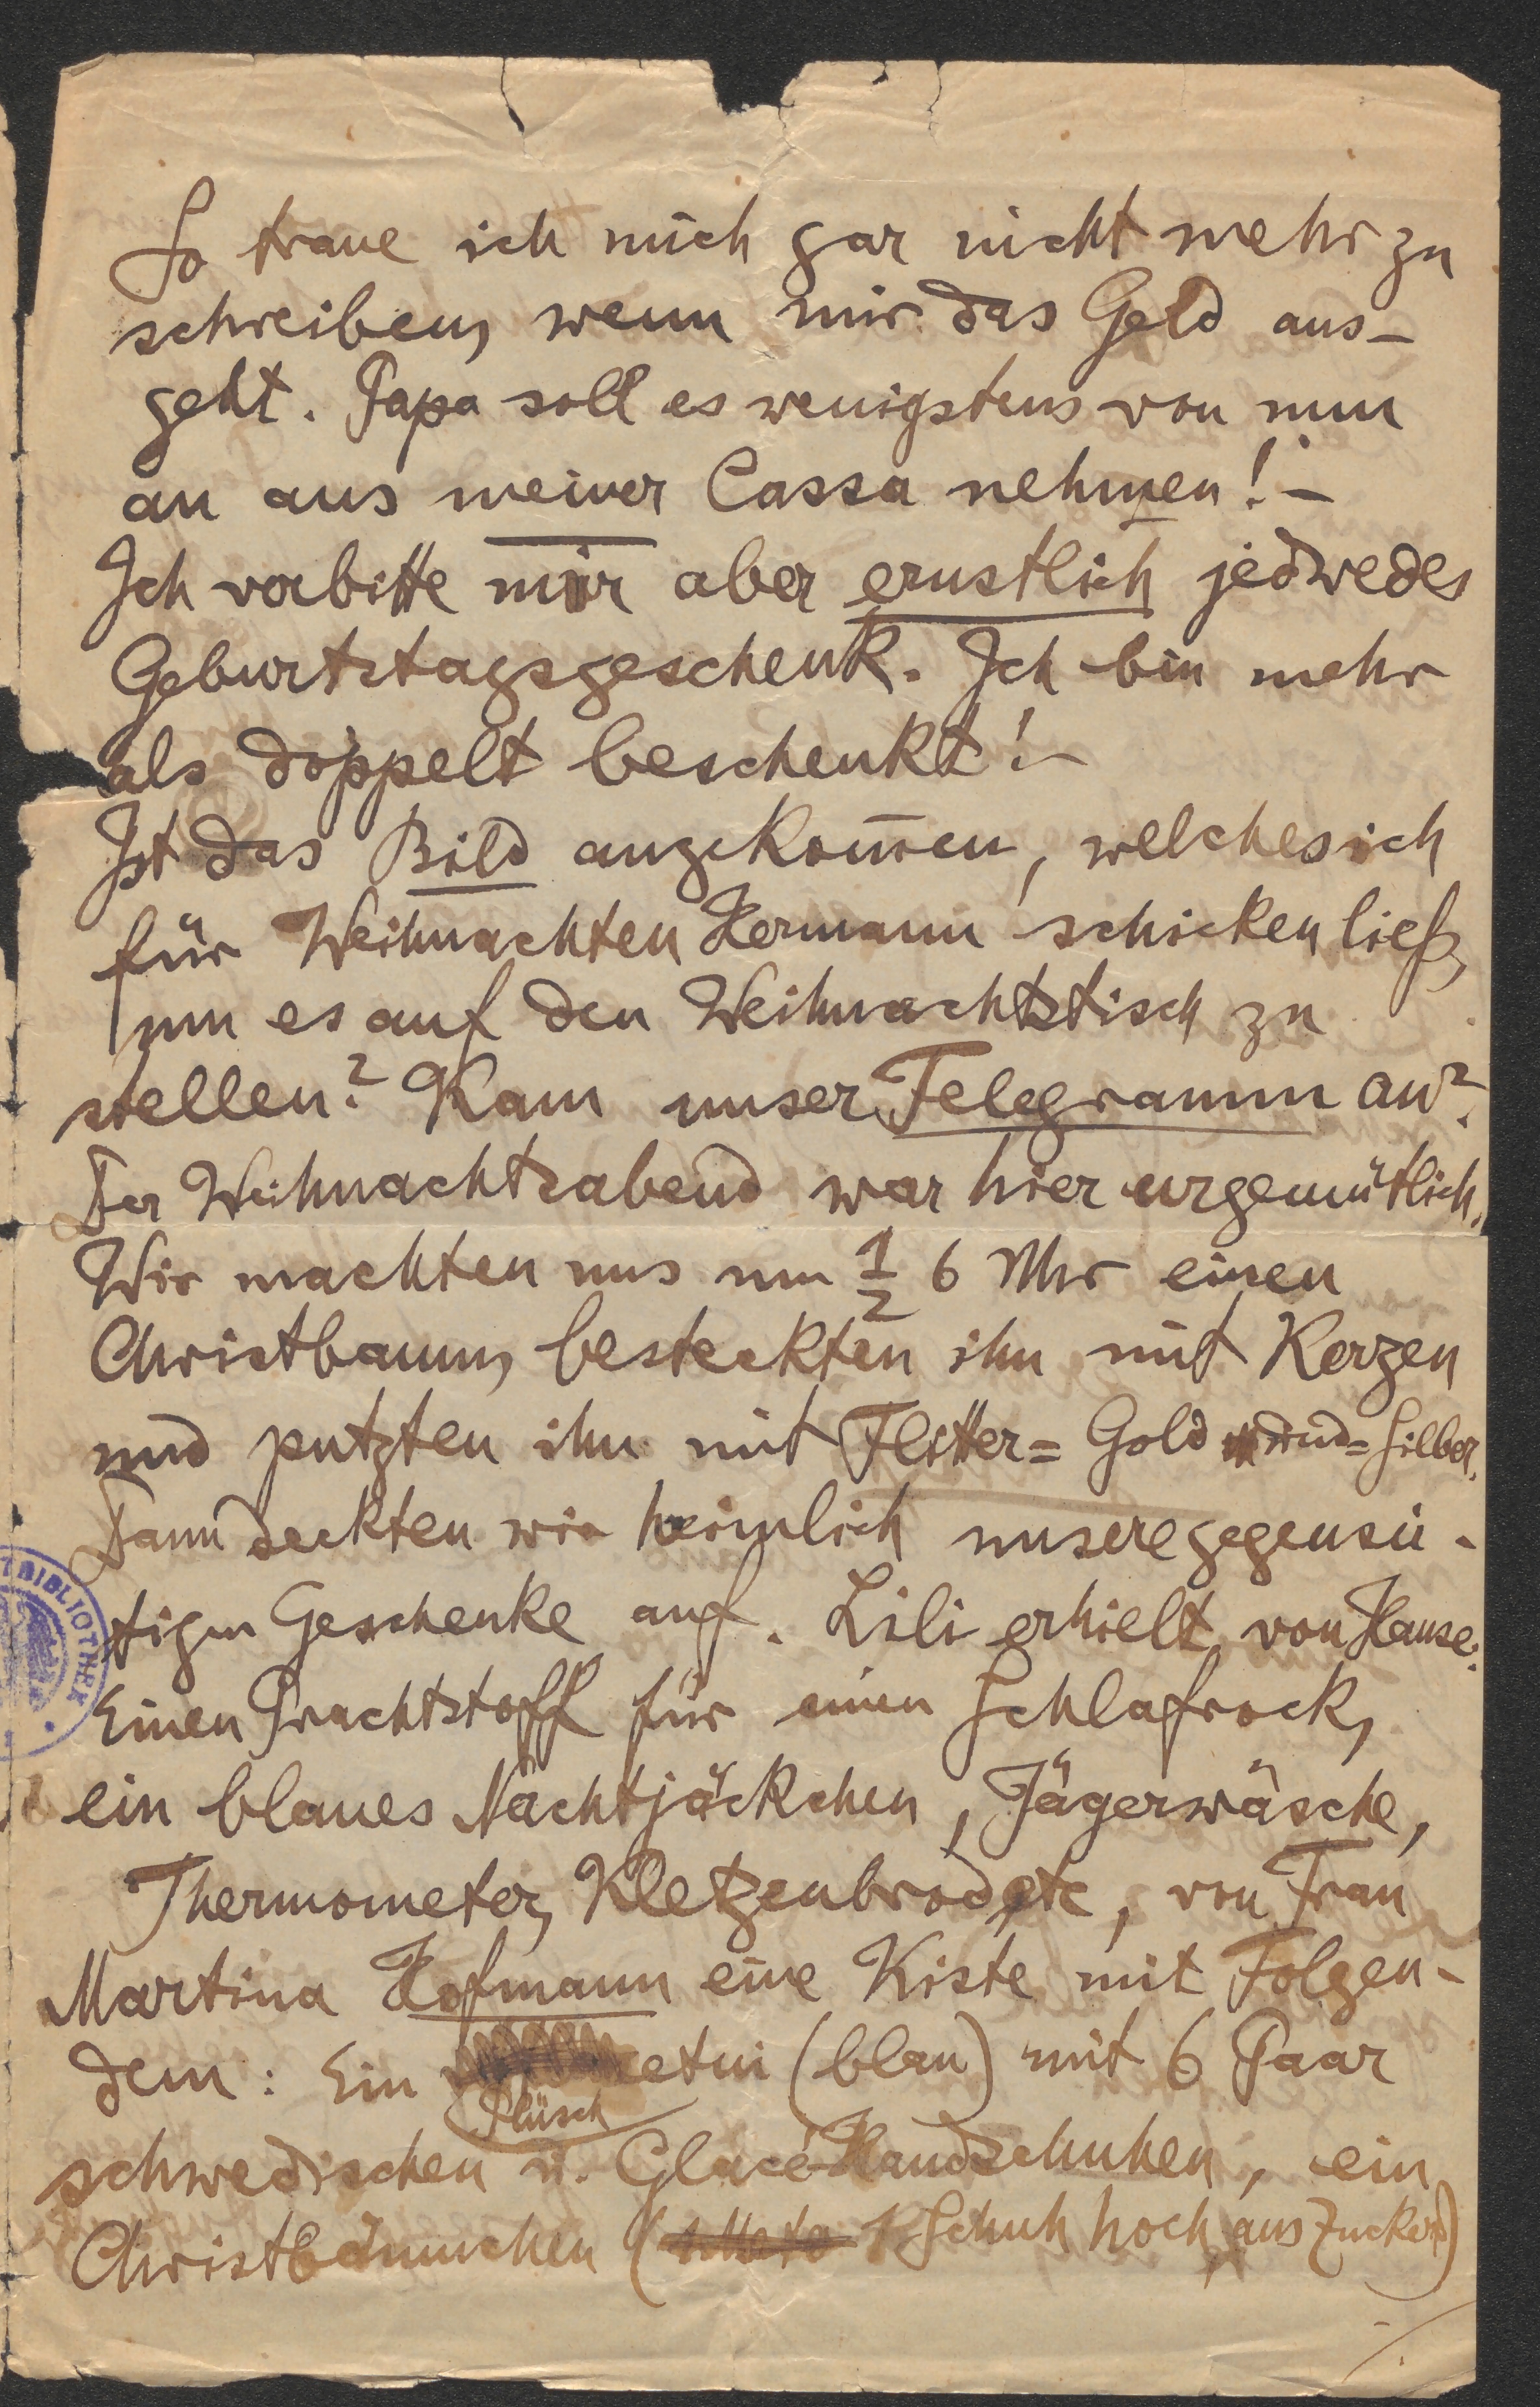 So traue ich mich gar nicht mehr zu
schreiben, wenn mir das Geld aus-
geht. Papa soll es wenigstens von nun
an aus meiner Cassa nehmen! -
Ich verbitte mir aber ernstlich jedwedes
Geburtstagsgeschenk. Ich bin mehr
als doppelt beschenkt! -
Ist das Bild angekom̅en, welches ich
für Weihnachten Hermann schicken ließ,
um es auf den Weihnachtstisch zu
stellen? Kam unser Telegramm an?
Der Weihnachtsabend war hier urgemütlich.
Wir machten uns um 1/2 6 Uhr einen
Christbaum, besteckten ihn mit Kerzen
und putzten ihn mit Flitter= Gold und=Silber.
Dann deckten wir heimlich unsere gegensei-
tigen Geschenke auf. Lili erhielt von Hause:
Einen Prachtstoff für einen Schlafrock,
ein blaues Nachtjäckchen, Jägerwäsche,
Thermometer, Kletzenbrod etc, von Frau
Martina Hofmann eine Kiste mit Folgen-
dem: Ein etui (blau) mit 6 Paar
Plüsch
schwedischen u. Glacé-Handschuhen, ein
Christbäumchen (1 Schuh hoch, aus Zucker)
BIBLIOTHEK